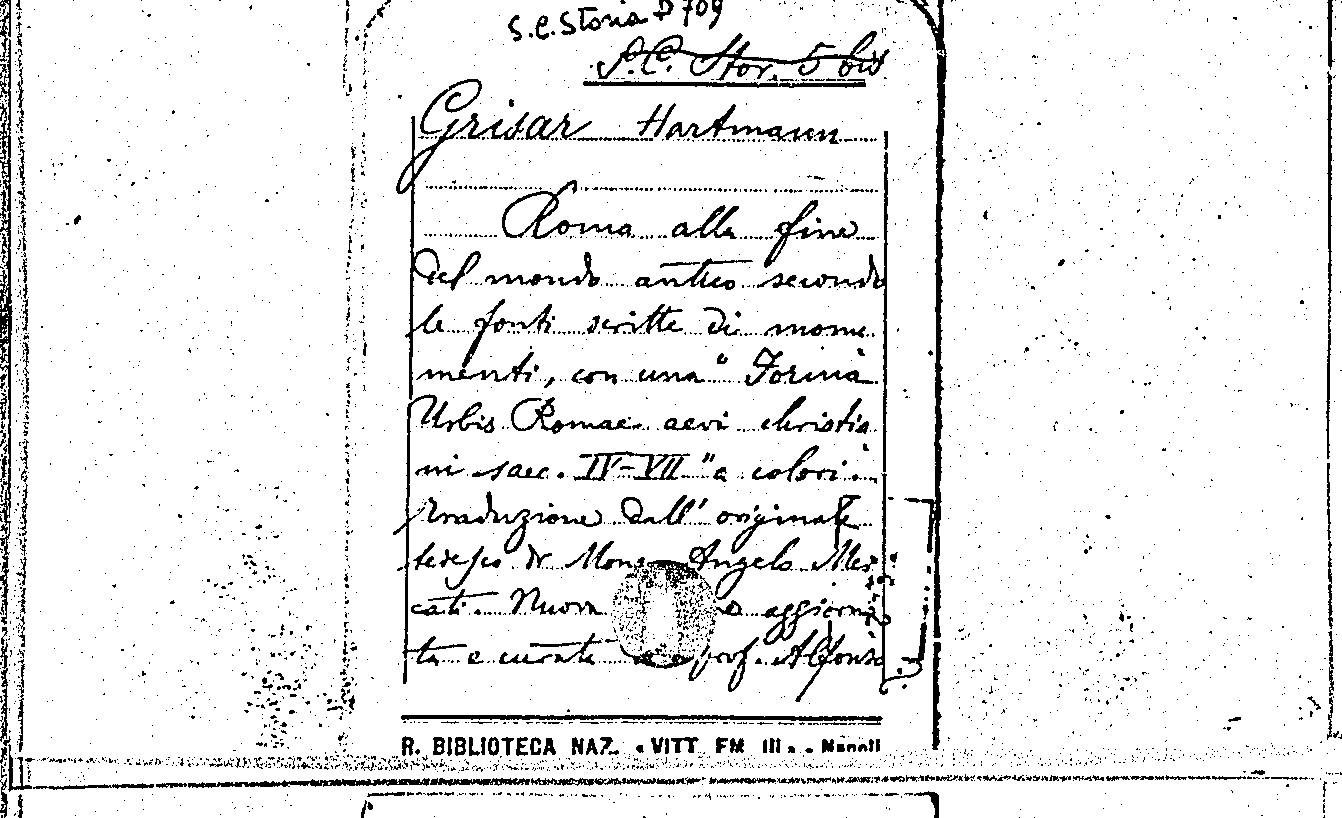 S.C. Storia D 709
S.C. Stor. 5 bis
Grisar Hartmann
Roma alla fine
del mondo antico secondo
le fonti scritte di monu
menti, con una "Forma
Urbis Romae aevi christia
ni saec. IV-VII" a colori.
Traduzione dall'originale
tedesco di Mons. Angelo Mer
cati. Nuova aggiorna
ta e curata prof. Alfonso
R. BIBLIOTECA NAZ. • VITT. EM. III. • Napoli